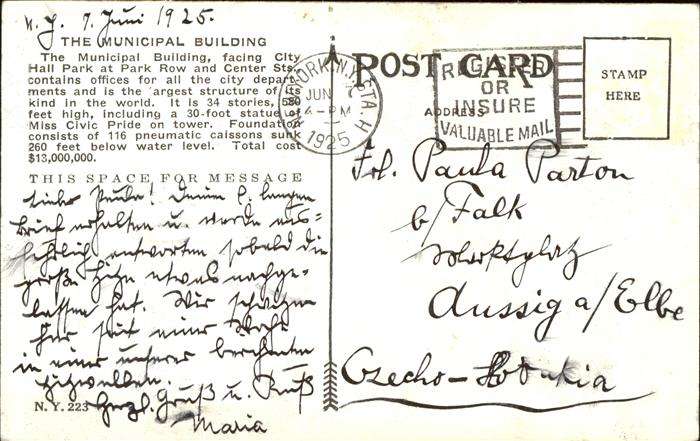 N.Y. 7. Juni 1925.
THE MUNICIPAL BUILDING
The Municipal Building, facing City
Hall Park at Park Row and Center Sts.
contains offices for all the city depart-
ments and is the largest structure of its
kind in the world. It is 34 stories, 580
feet high, including a 30-foot statue of
Miss Civic Pride on tower. Foundation
consists of 116 pneumatic caissons sunk
260 feet below water level. Total cost
$13,000,000.
THIS SPACE FOR MESSAGE
Liebe Paula! Deinen l. langen
Brief erhalten u. werde aus=
führlich antworten sobald die
große Hitze etwas nachge-
lassen hat. Wir schwitzen
hier seit einer Woche
in einer unserer berühmten
Hitzwellen.
Herzl. Gruß u. Kuß
Maria
N.Y. 223
POST CARD
ADDRESS
JUN 7
4-PM
1925
STA. H
REGISTER
OR
INSURE
VALUABLE MAIL
STAMP
HERE
Frl. Paula Parton
b/Falk
Marktplatz
Aussig a/Elbe
Czecho-